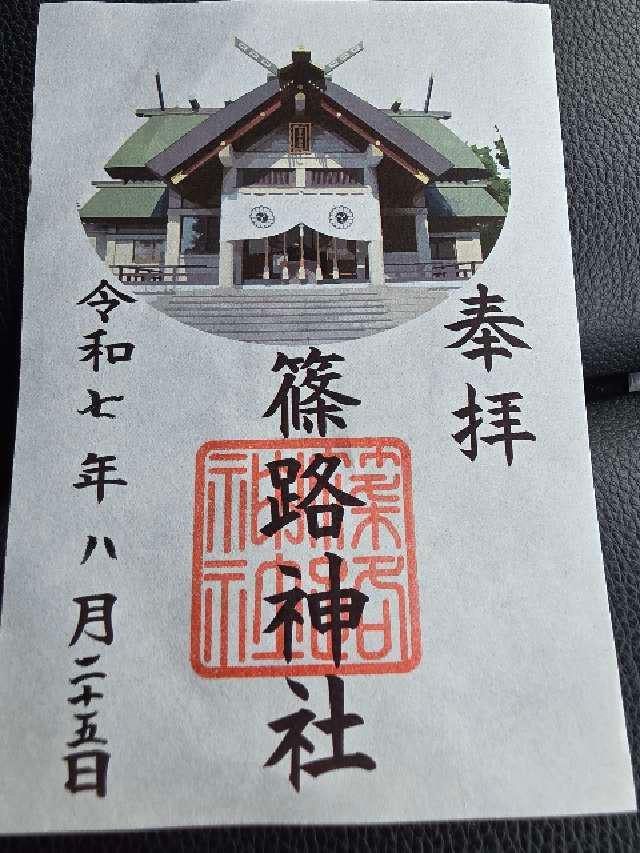 奉拝
篠路神社
令和七年八月二十五日